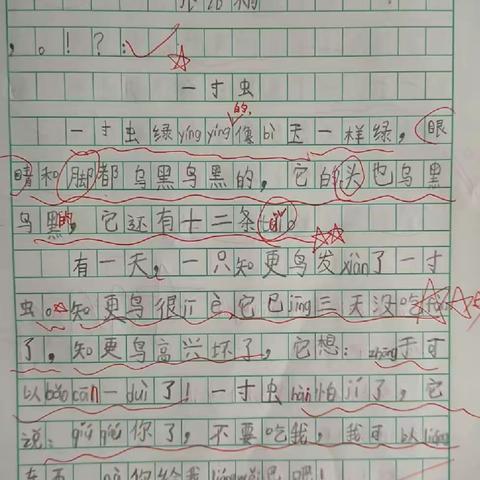 ，。！？：
一寸虫
一寸虫绿yíng yíng的，像bì玉一样绿，眼
睛和脚都乌黑乌黑的，它的头也乌黑
乌黑的，它还有十二条tuǐ。
有一天，一只知更鸟发xiàn了一寸
虫。知更鸟很jī它已jīng三天没吃fàn
了，知更鸟高兴坏了，它想：zhōng于可
以bǎo cān一duì了！一寸虫hài怕jí了，它
说：qiú qiú你了，不要吃我，我可以liáng
东西，你给我liáng吧吧！